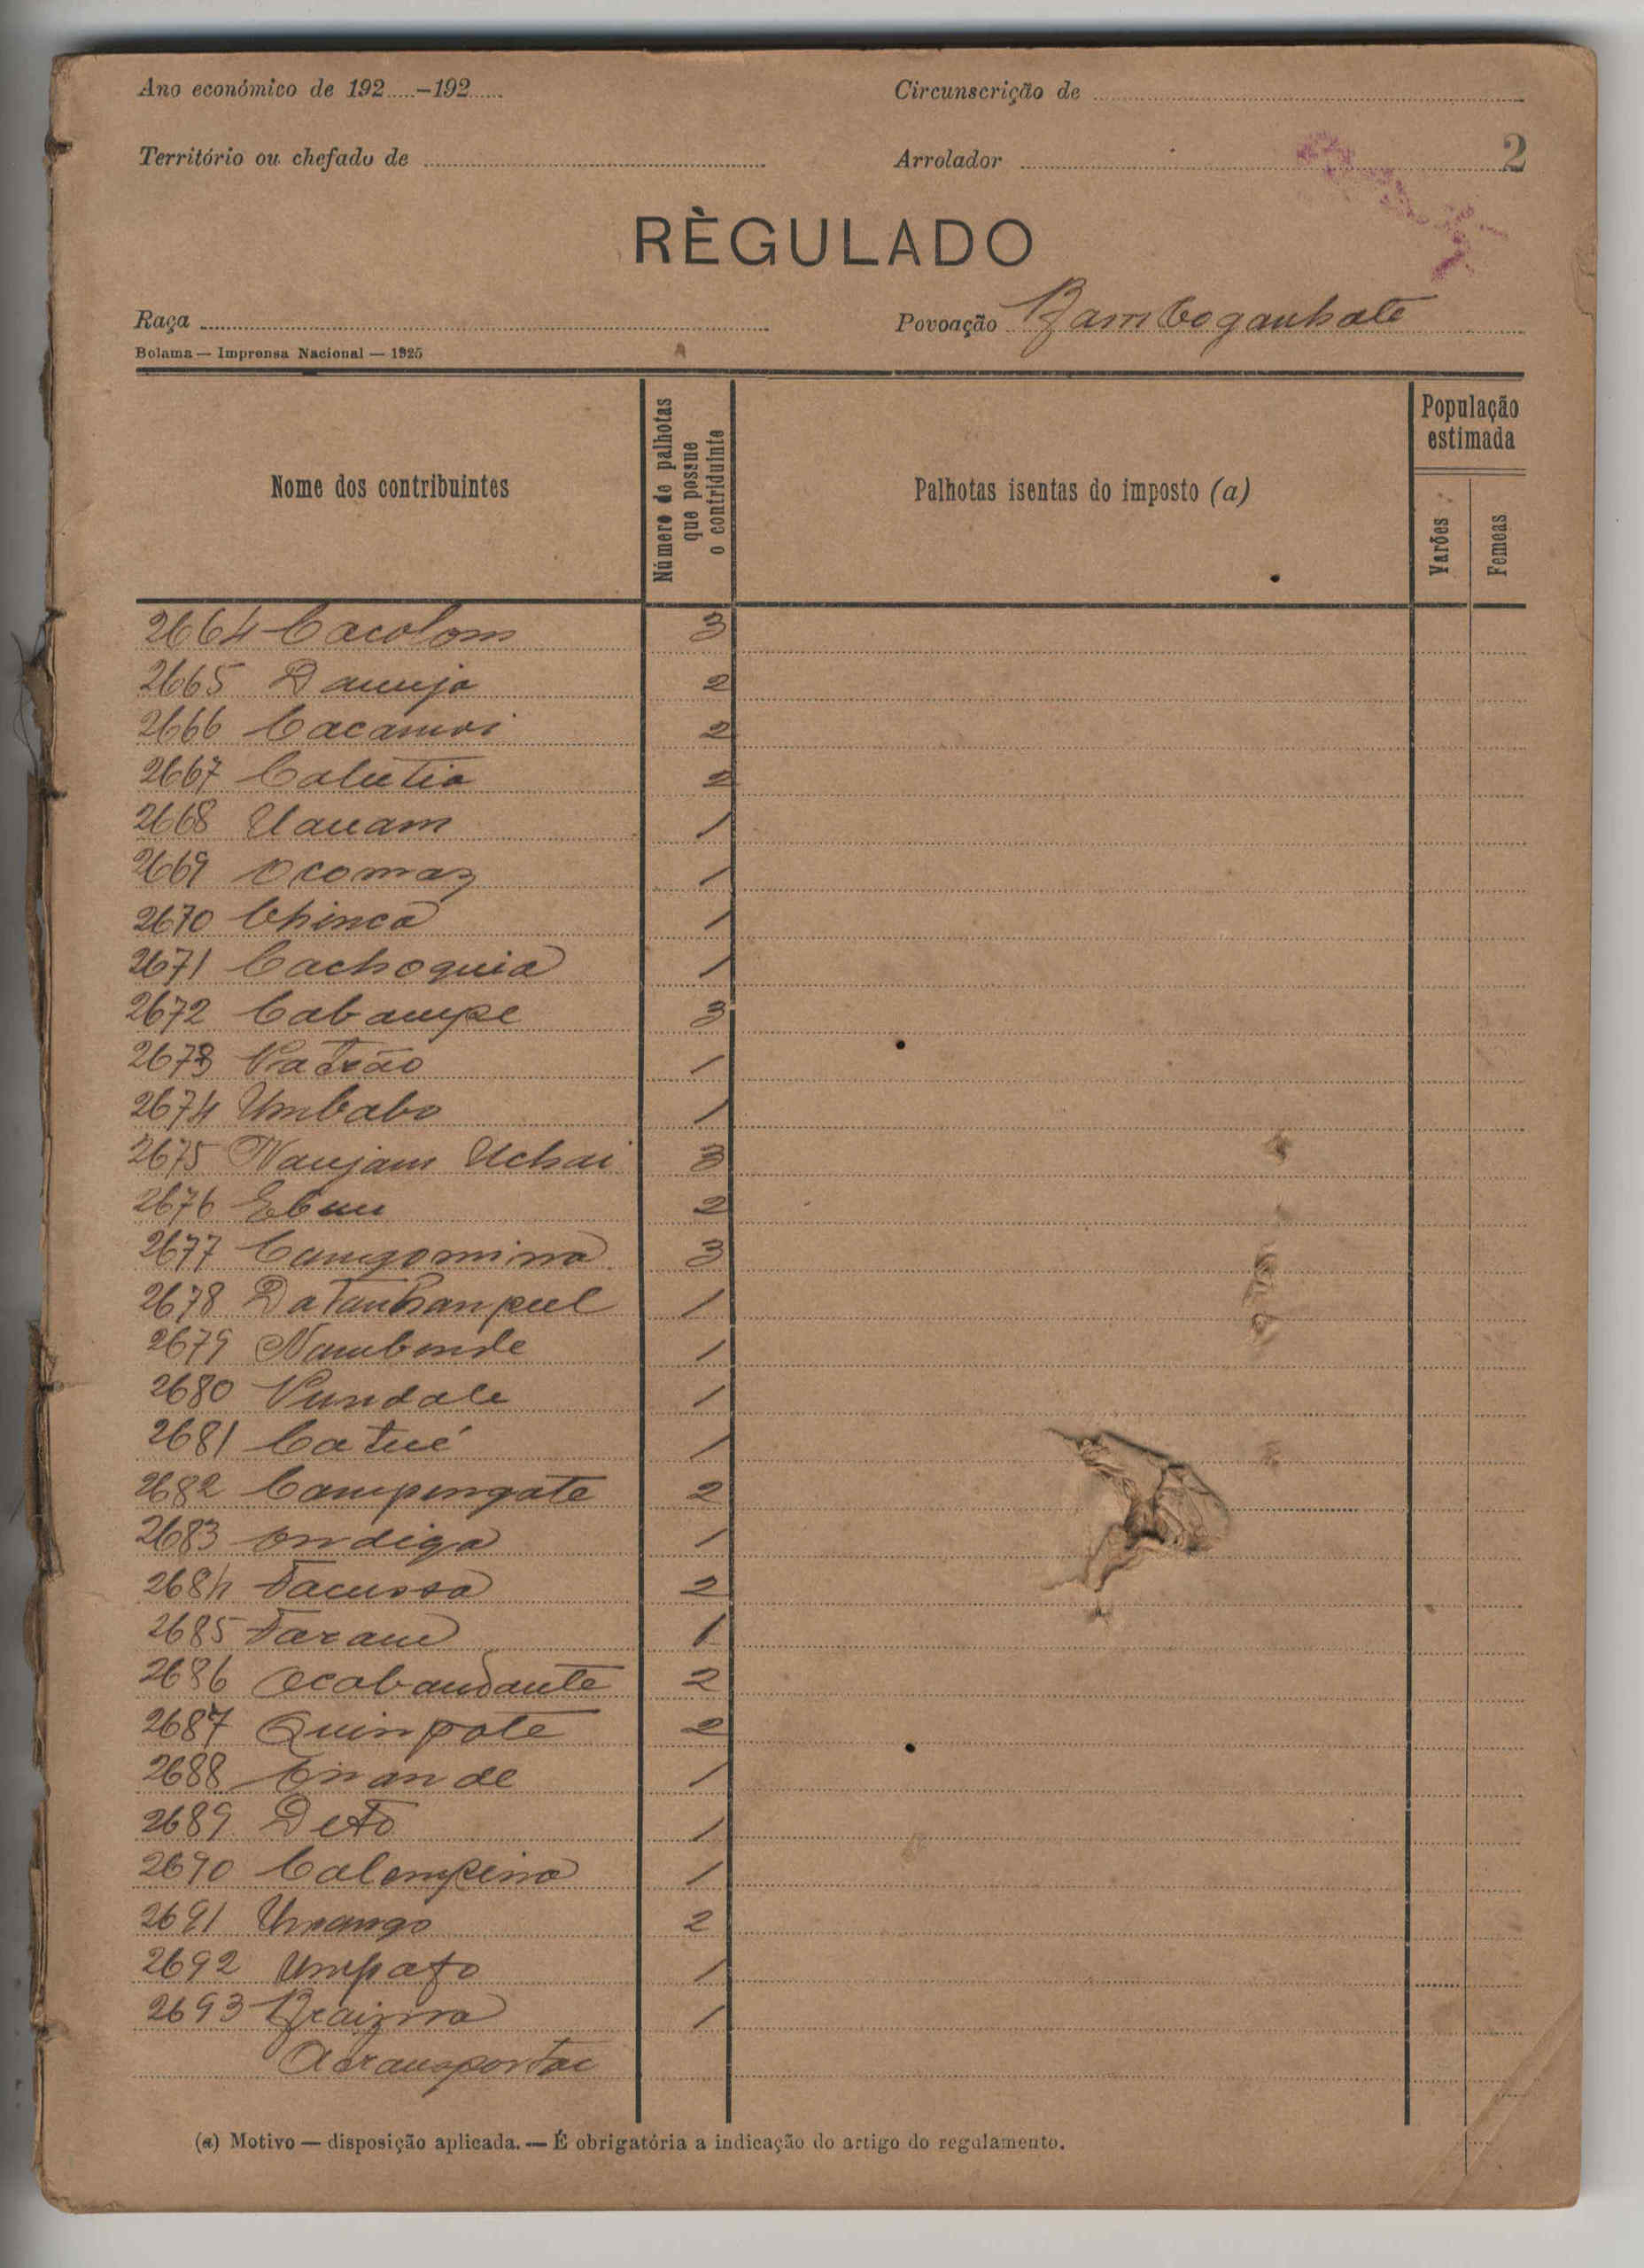 Ano económico de 192.....–192.....
Circunscrição de
Território ou chefado de
Arrolador
2
RÈGULADO
Raça
Povoação Bamboganhate
Bolama — Imprensa Nacional — 1925
Nome dos contribuintes
Número de palhotas que possue o contriduinte
Palhotas isentas do imposto (a)
População estimada
Varões
Femeas
2664 Cacolom 3
2665 Damija 2
2666 Cacamoi 2
2667 Calutia 2
2668 Uauam 1
2669 Ocomaz 1
2670 Chinca 1
2671 Cachoquia 1
2672 Cabampe 3
2673 Patrão 1
2674 Umbabo 1
2675 Naujam Uchai 3
2676 Ebuu 2
2677 Cangomina 3
2678 1
2679 Nambonde 1
2680 Pundale 1
2681 Catué 1
2682 Campongate 2
2683 Ondiga 1
2684 Tacussa 2
2685 Taram 1
2686 Ocobandante 2
2687 Quinpote 2
2688 1
2689 Deto 1
2690 Calempina 1
2691 Umango 2
2692 Umpafo 1
2693 1
A transportar
(a) Motivo — disposição aplicada. — É obrigatória a indicação do artigo do regulamento.